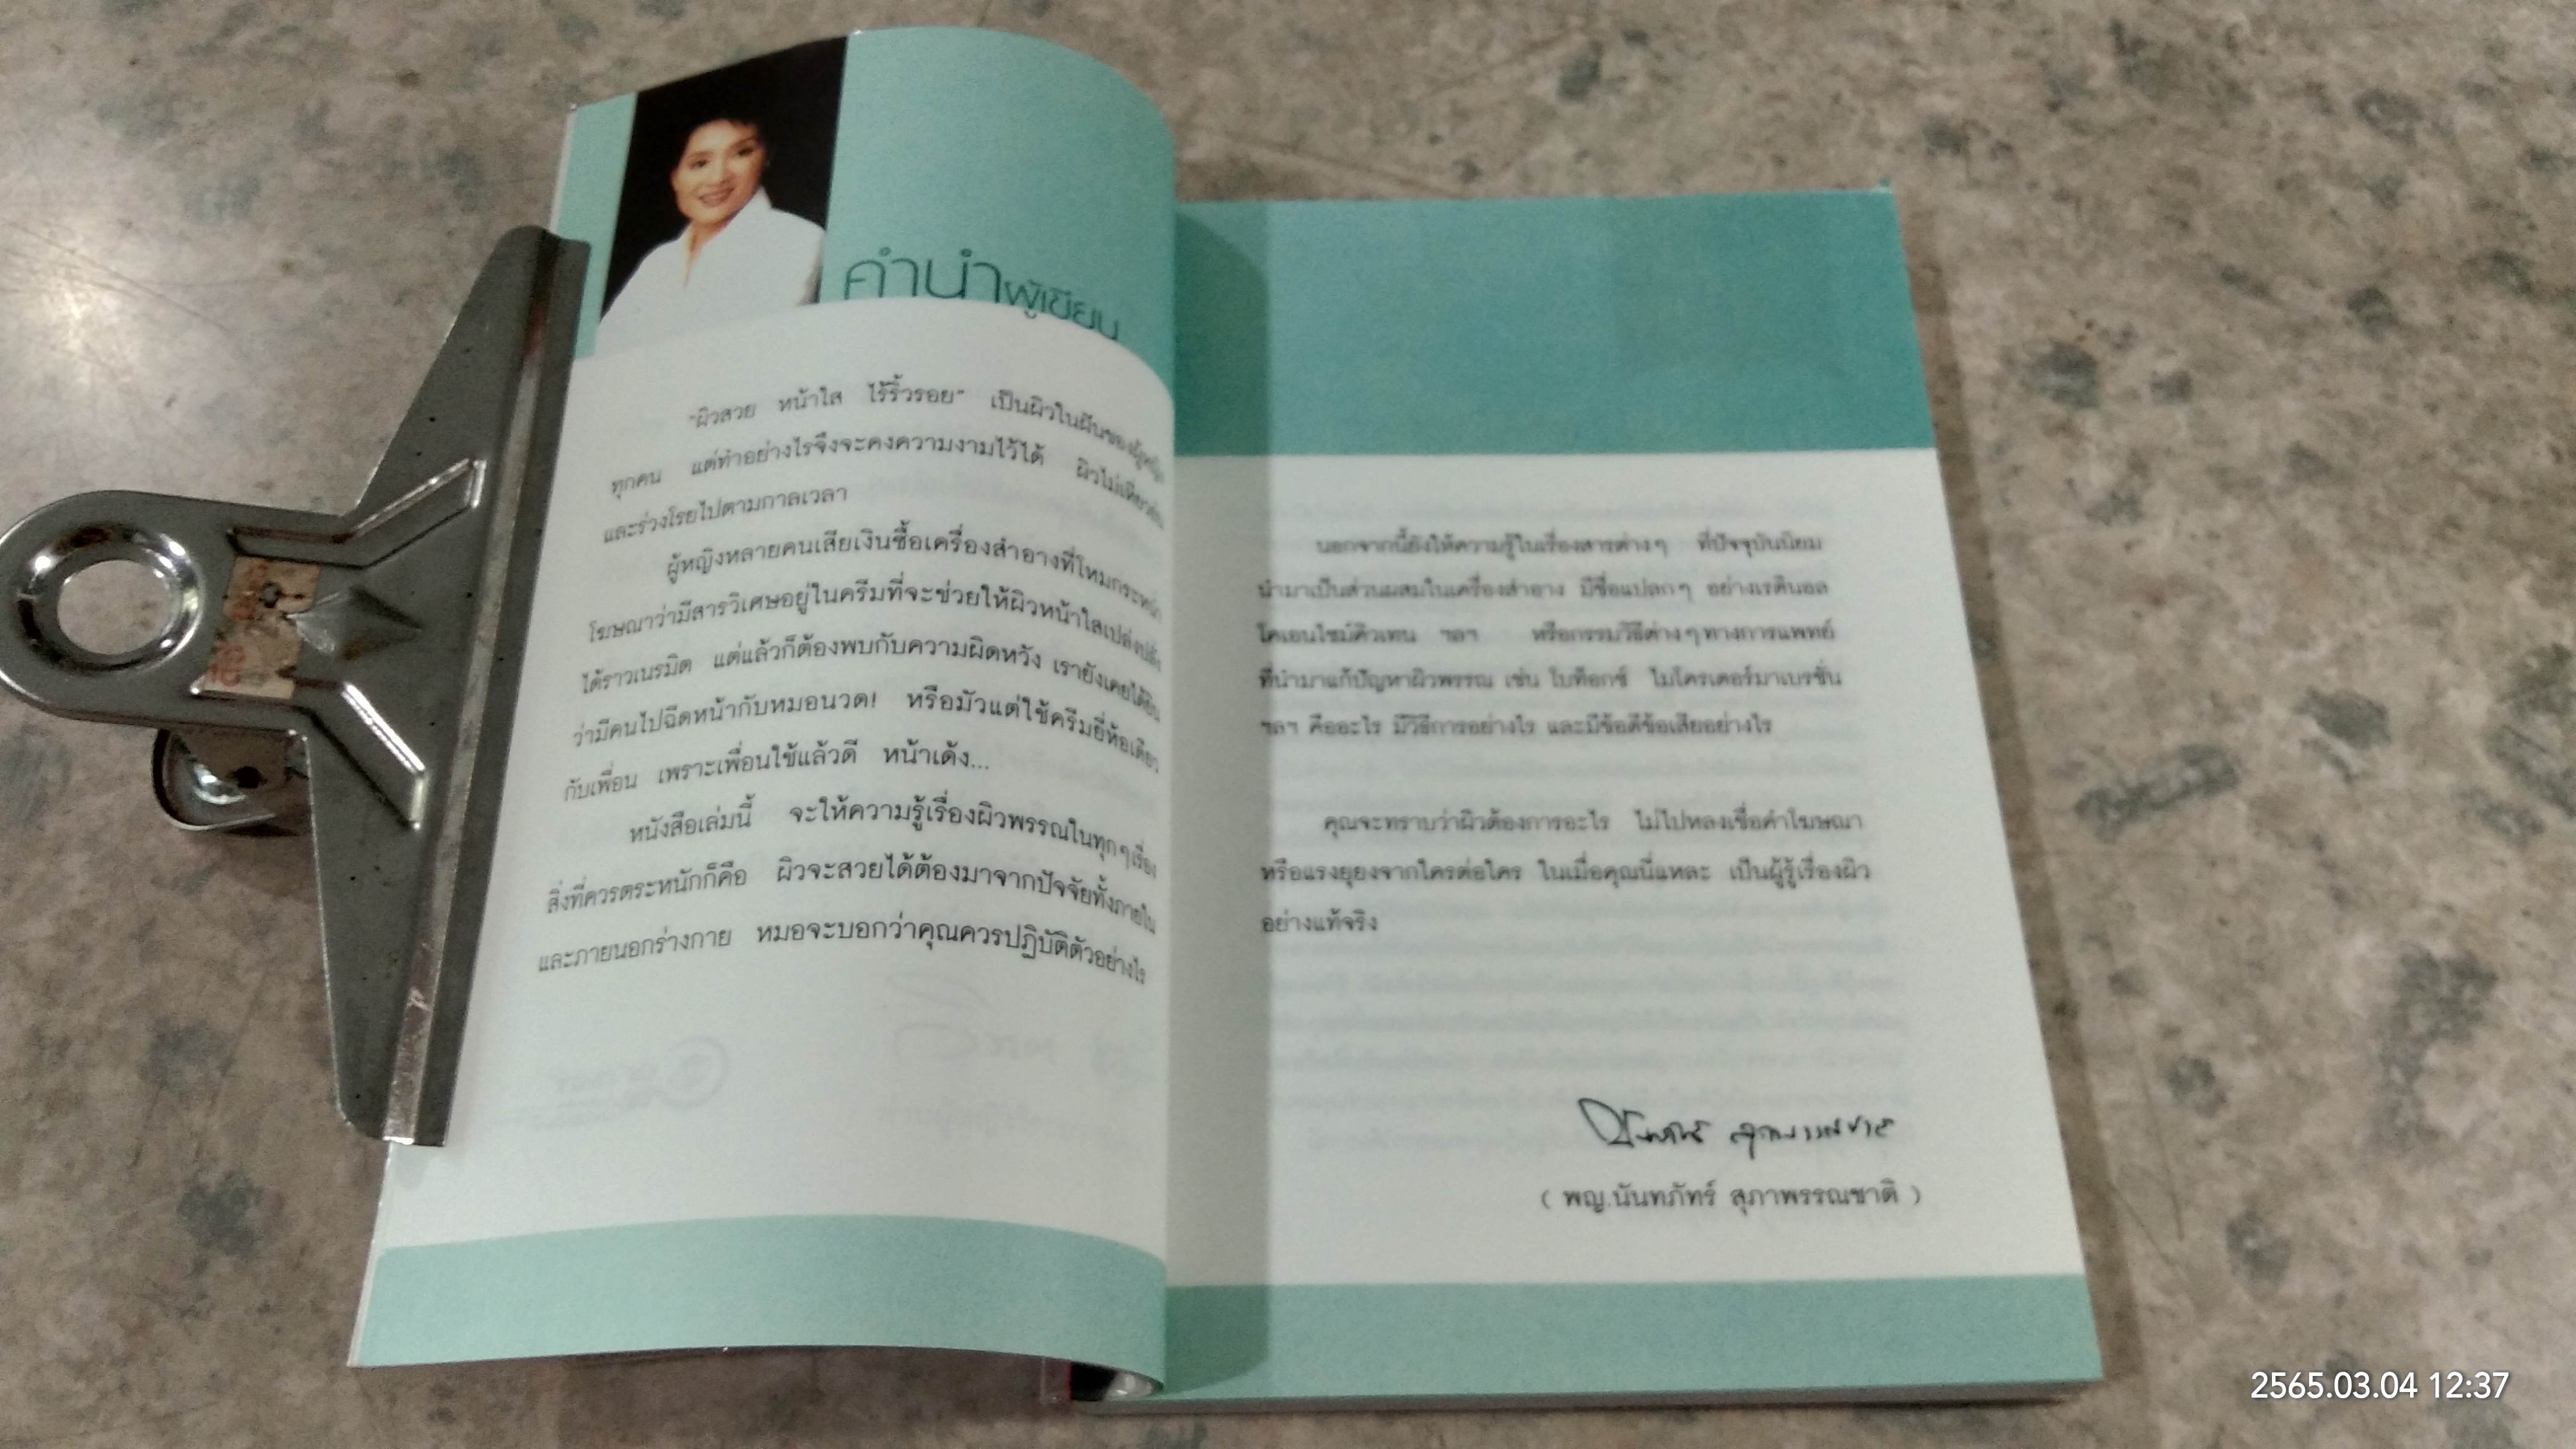 คำนำผู้เขียน
"ผิวสวย หน้าใส ไร้ริ้วรอย" เป็นผิวในฝันของผู้หญิง
ทุกคน แต่ทำอย่างไรจึงจะคงความงามไว้ได้ ผิวไม่เหี่ยวย่น
และร่วงโรยไปตามกาลเวลา
ผู้หญิงหลายคนเสียเงินซื้อเครื่องสำอางที่โหมกระหน่ำ
โฆษณาว่ามีสารวิเศษอยู่ในครีมที่จะช่วยให้ผิวหน้าใสเปล่งปลั่ง
ได้ราวเนรมิต แต่แล้วก็ต้องพบกับความผิดหวัง เรายังเคยได้ยิน
ว่ามีคนไปฉีดหน้ากับหมอนวด! หรือมัวแต่ใช้ครีมยี่ห้อเดียว
กับเพื่อน เพราะเพื่อนใช้แล้วดี หน้าเด้ง...
หนังสือเล่มนี้ จะให้ความรู้เรื่องผิวพรรณในทุกๆเรื่อง
สิ่งที่ควรตระหนักก็คือ ผิวจะสวยได้ต้องมาจากปัจจัยทั้งภายใน
และภายนอกร่างกาย หมอจะบอกว่าคุณควรปฏิบัติตัวอย่างไร
นอกจากนี้ยังให้ความรู้ในเรื่องสารต่างๆ ที่ปัจจุบันนิยม
นำมาเป็นส่วนผสมในเครื่องสำอาง มีชื่อแปลกๆ อย่างเรตินอล
โคเอนไซม์คิวเทน ฯลฯ หรือกรรมวิธีต่างๆทางการแพทย์
ที่นำมาแก้ปัญหาผิวพรรณ เช่น โบท็อกซ์ ไมโครเดอร์มาเบรชั่น
ฯลฯ คืออะไร มีวิธีการอย่างไร และมีข้อดีข้อเสียอย่างไร
คุณจะทราบว่าผิวต้องการอะไร ไม่ไปหลงเชื่อคำโฆษณา
หรือแรงยุยงจากใครต่อใคร ในเมื่อคุณนี่แหละ เป็นผู้รู้เรื่องผิว
อย่างแท้จริง
( พญ.นันทภัทร์ สุภาพรรณชาติ )
2565.03.04 12:37